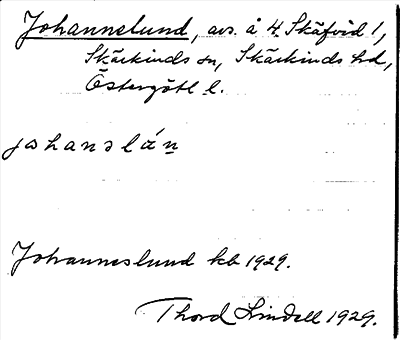 Johanneslund, avs. å 4 Skäfvid 1,
Skärkinds sn, Skärkinds hd,
Östergötl l.
johanslán
Johanneslund kb 1929.
Thord Lindell 1929.